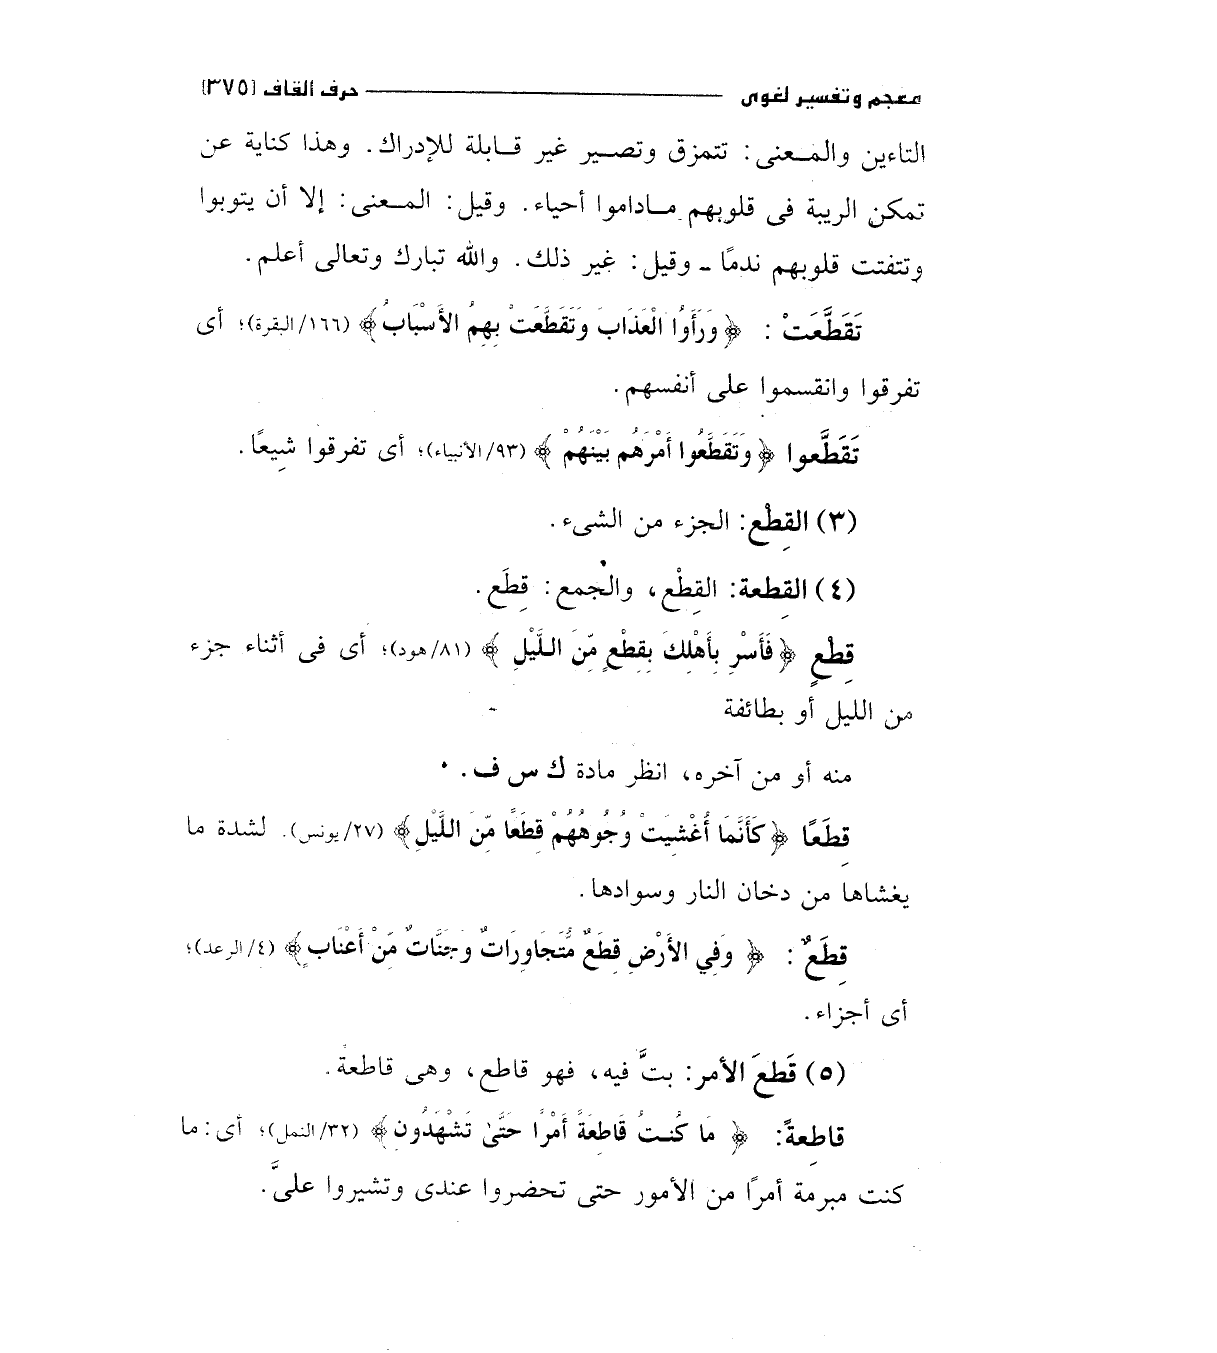 معجم وتفسير لغوى حرف القاف [٣٧٥]
التاءين والمعنى: تتمزق وتصير غير قابلة للإدراك. وهذا كناية عن
تمكن الريبة فى قلوبهم ماداموا أحياء. وقيل: المعنى: إلا أن يتوبوا
وتتفتت قلوبهم ندمًا - وقيل: غير ذلك. والله تبارك وتعالى أعلم.
تَقَطَّعَتْ: ﴿وَرَأَوُا الْعَذَابَ وَتَقَطَّعَتْ بِهِمُ الأَسْبَابُ﴾ (١٦٦/البقرة)؛ أى
تفرقوا وانقسموا على أنفسهم.
تَقَطَّعوا ﴿وَتَقَطَّعُوا أَمْرَهُم بَيْنَهُمْ﴾ (٩٣/الأنبياء)؛ أى تفرقوا شِيعًا.
(٣) القِطْع: الجزء من الشىء.
(٤) القِطعة: القِطْع، والجمع: قِطَع.
قِطْعٍ ﴿فَأَسْرِ بِأَهْلِكَ بِقِطْعٍ مِّنَ اللَّيْلِ﴾ (٨١/هود)؛ أى فى أثناء جزء
من الليل أو بطائفة
منه أو من آخره، انظر مادة ك س ف.
قِطَعًا ﴿كَأَنَّمَا أُغْشِيَتْ وُجُوهُهُمْ قِطَعًا مِّنَ اللَّيْلِ﴾ (٢٧/يونس). لشدة ما
يغشاها من دخان النار وسوادها.
قِطَعٌ: ﴿وَفِي الأَرْضِ قِطَعٌ مُّتَجَاوِرَاتٌ وَجَنَّاتٌ مِّنْ أَعْنَابٍ﴾ (٤/الرعد)؛
أى أجزاء.
(٥) قَطَعَ الأمر: بتَّ فيه، فهو قاطع، وهى قاطعة.
قاطِعةً: ﴿مَا كُنتُ قَاطِعَةً أَمْرًا حَتَّىٰ تَشْهَدُونِ﴾ (٣٢/النمل)؛ أى: ما
كنت مبرمة أمرًا من الأمور حتى تحضروا عندى وتشيروا علىَّ.